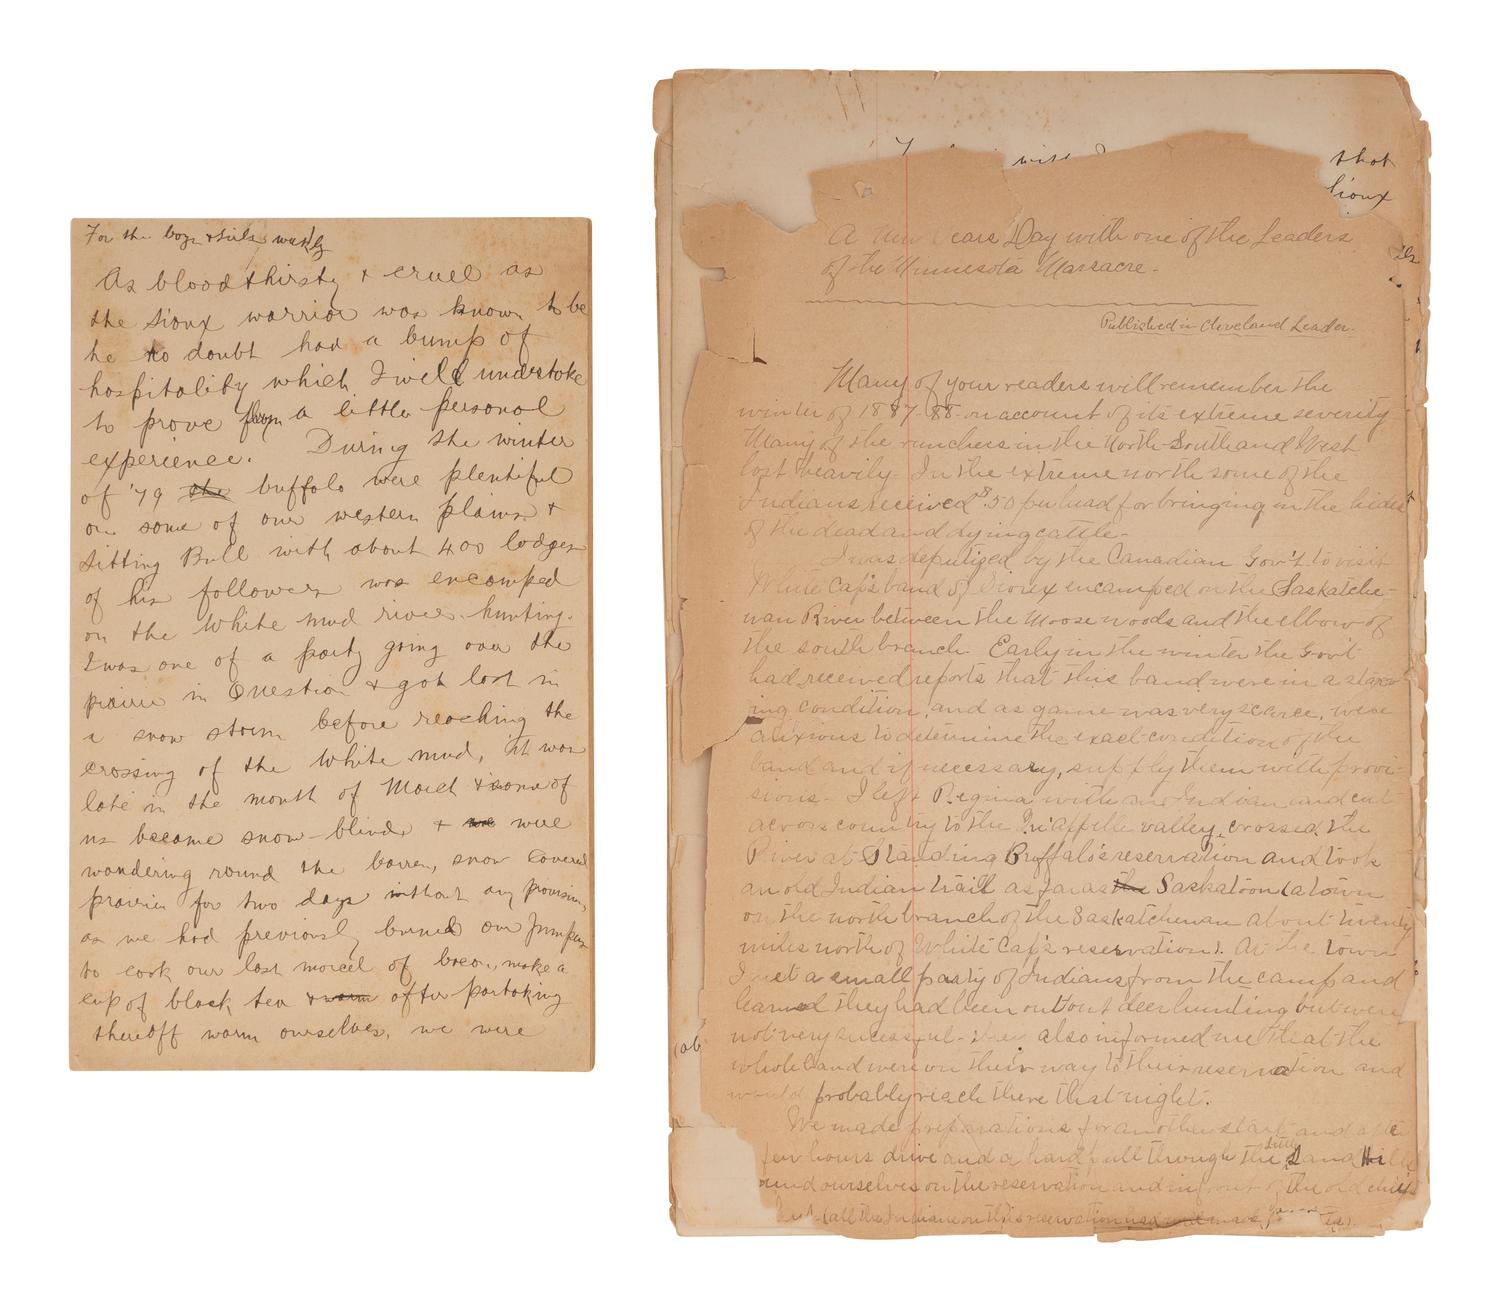 For the boys & girls weekly
As bloodthirsty & cruel as
the Sioux warrior was known to be
he no doubt had a bump of
hospitality which I will undertoke
to prove from a little personal
experience. During the winter
of '79 the buffalo were plentiful
on some of our western plains &
Sitting Bull with about 400 lodges
of his followers was encamped
on the White mud river hunting.
I was one of a party going over the
prairie in Question & got lost in
a snow storm before reaching the
crossing of the White mud, it was
late in the month of March & some of
us became snow-blind & we were
wandering round the barren, snow covered
prairies for two days without any provision,
as we had previously burned our Jumpers
to cook our last morcel of bacon, make a
cup of black tea & warm after partaking
thereoff warm ourselves, we were
that
Sioux
A New Years Day with one of the Leaders
of the Minnesota Massacre.
Published in Cleveland Leader.
Many of your readers will remember the
winter of 1887-88 on account of its extreme severity
Many of the ranchers in the North-South and West
lost heavily. In the extreme north some of the
Indians received $50 per head for bringing in the hides
of the dead and dying cattle.
I was deputized by the Canadian Gov't to visit
White Cap's band of Sioux encamped on the Saskatche-
wan River between the Moose woods and the elbow of
the south branch. Early in the winter the Gov't
had received reports that this band were in a starv
ing condition, and as game was very scarce, were
anxious to determine the exact condition of the
band and if necessary, supply them with provi-
sions. I left Regina with an Indian and cut
across country to the Qu'Appelle valley, crossed the
River at Standing Buffalo's reservation and took
an old Indian trail as far as the Saskatoon (a town
on the north branch of the Saskatchewan about twenty
miles north of White Cap's reservation). At the town
I met a small party of Indians from the camp and
learned they had been out deer hunting but were
not very sucessful. They also informed me that the
whole band were on their way to their reservation and
would probably reach there that night.
We made preparations for another start and after
few hours drive and a hard pull through the Little Sand Hills
ound ourselves on the reservation and in front of the old chief's
(all the Indians on this reservation had
(ab